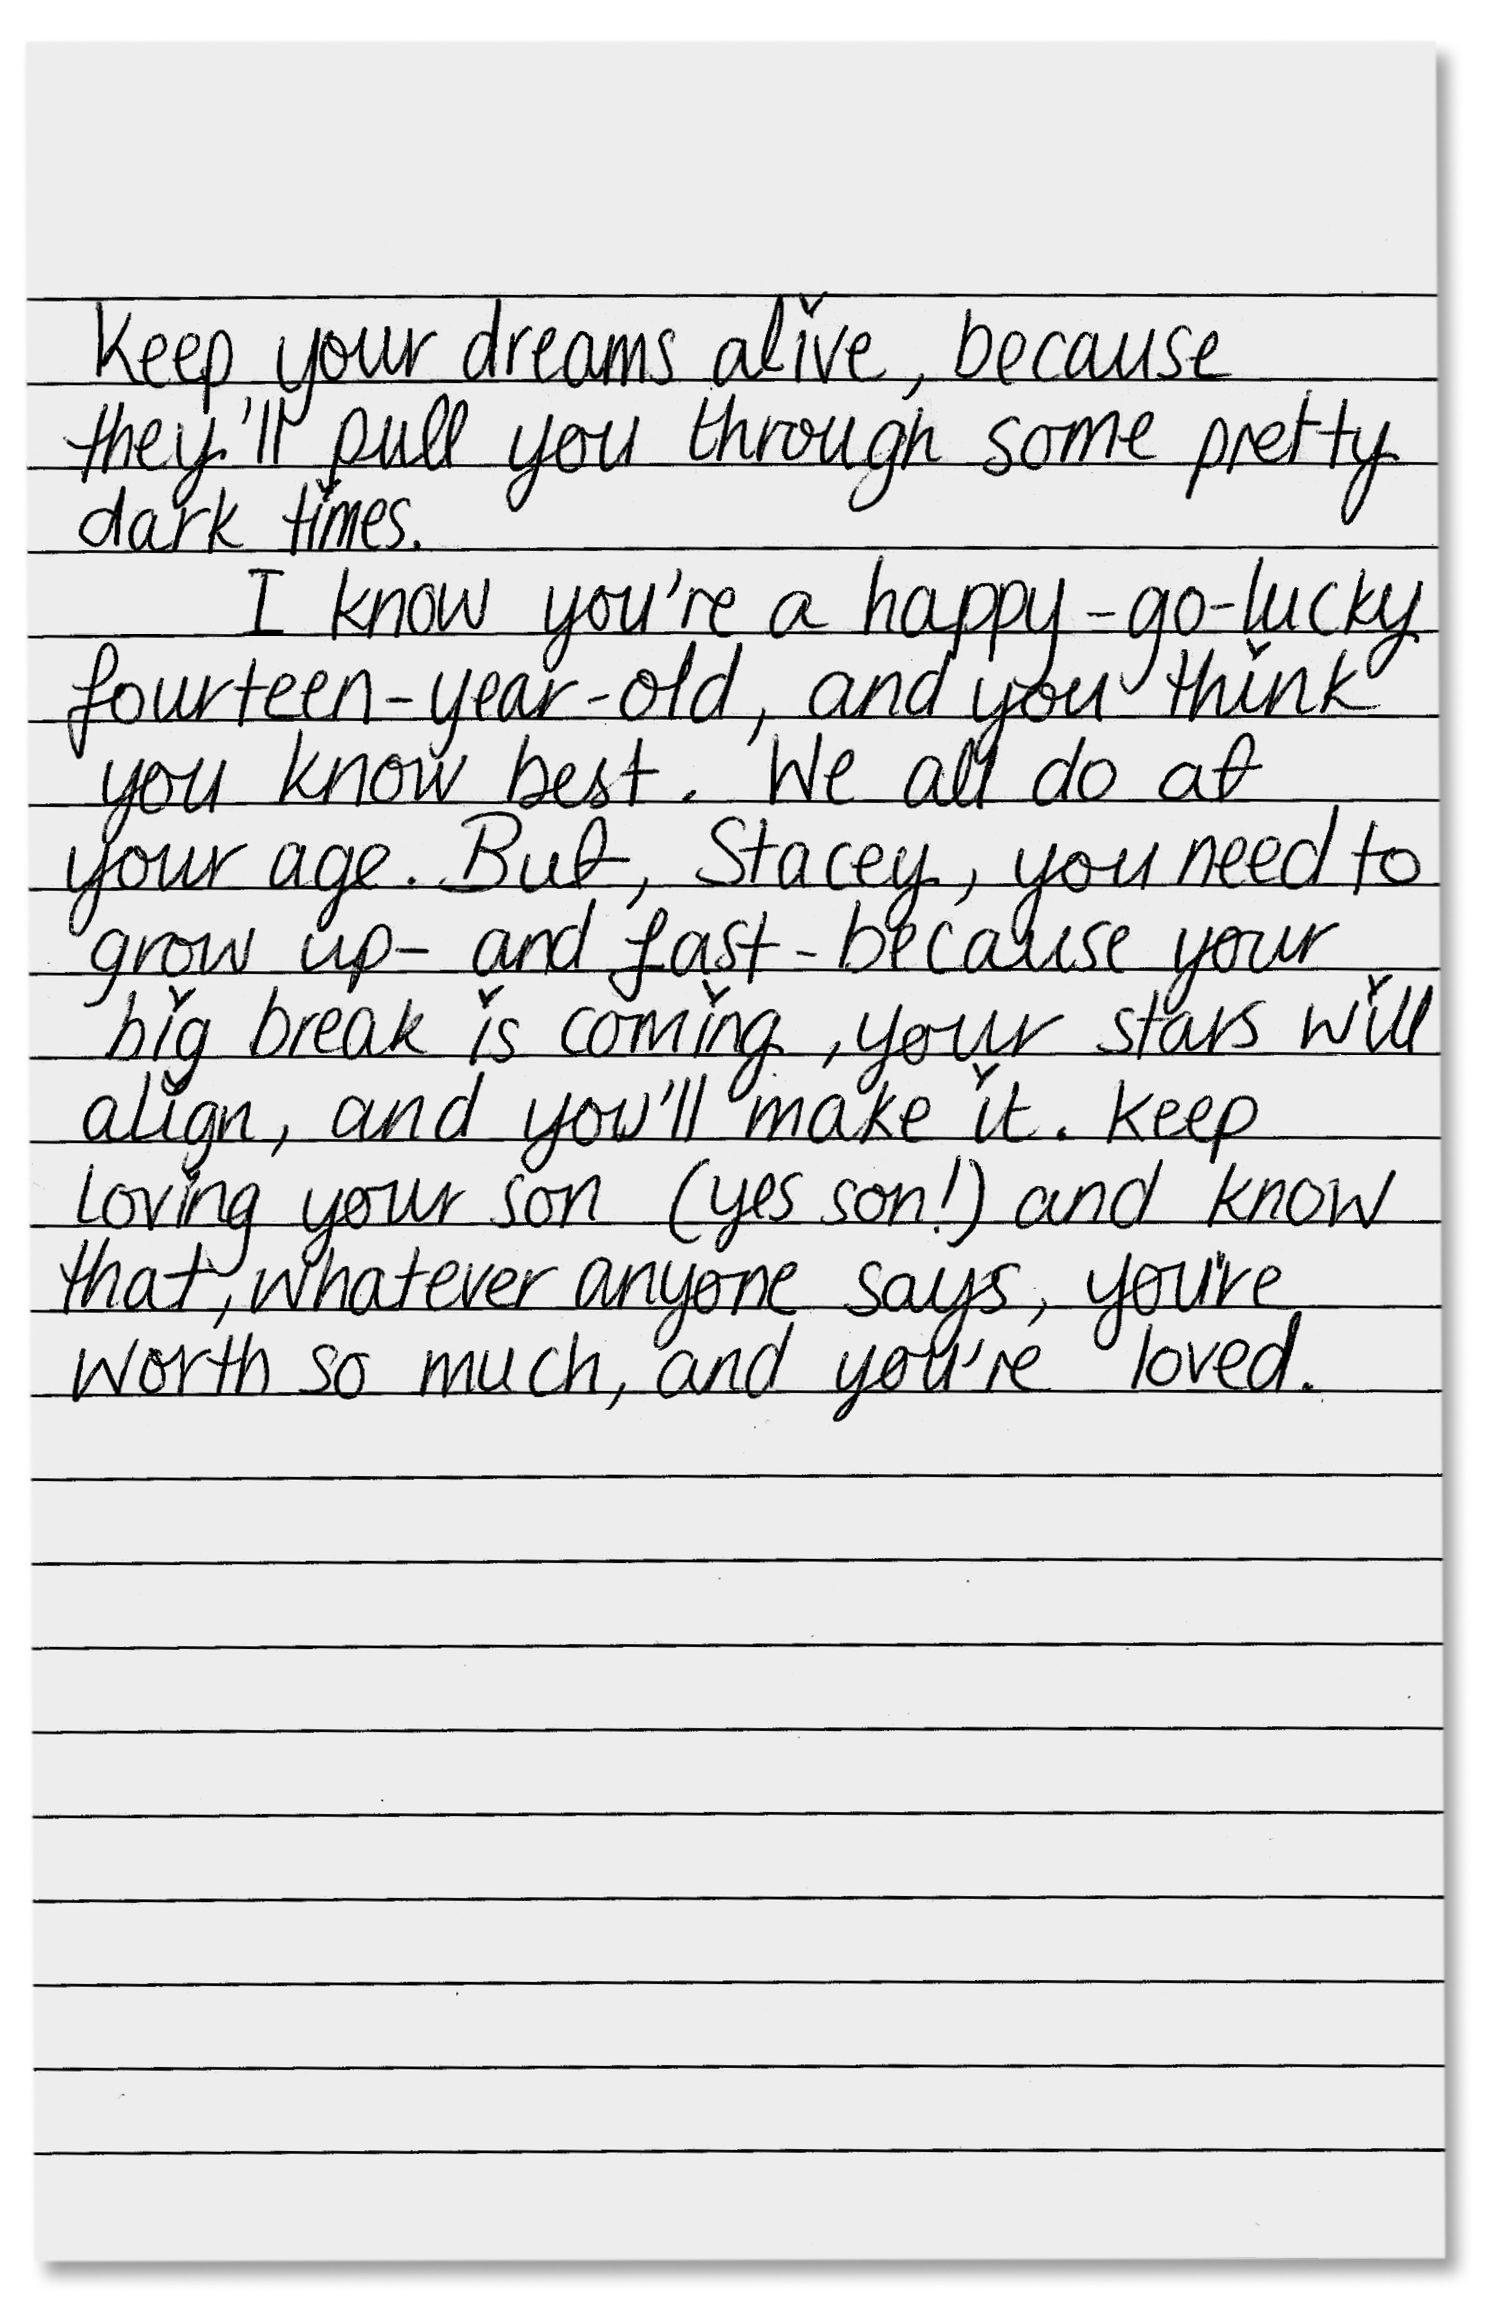 Keep your dreams alive, because
they'll pull you through some pretty
dark times.
I know you're a happy-go-lucky
fourteen-year-old, and you think
you know best. We all do at
your age. But, Stacey, you need to
grow up- and fast-because your
big break is coming, your stars will
align, and you'll make it. Keep
loving your son (yes son!) and know
that, whatever anyone says, you're
worth so much, and you're loved.